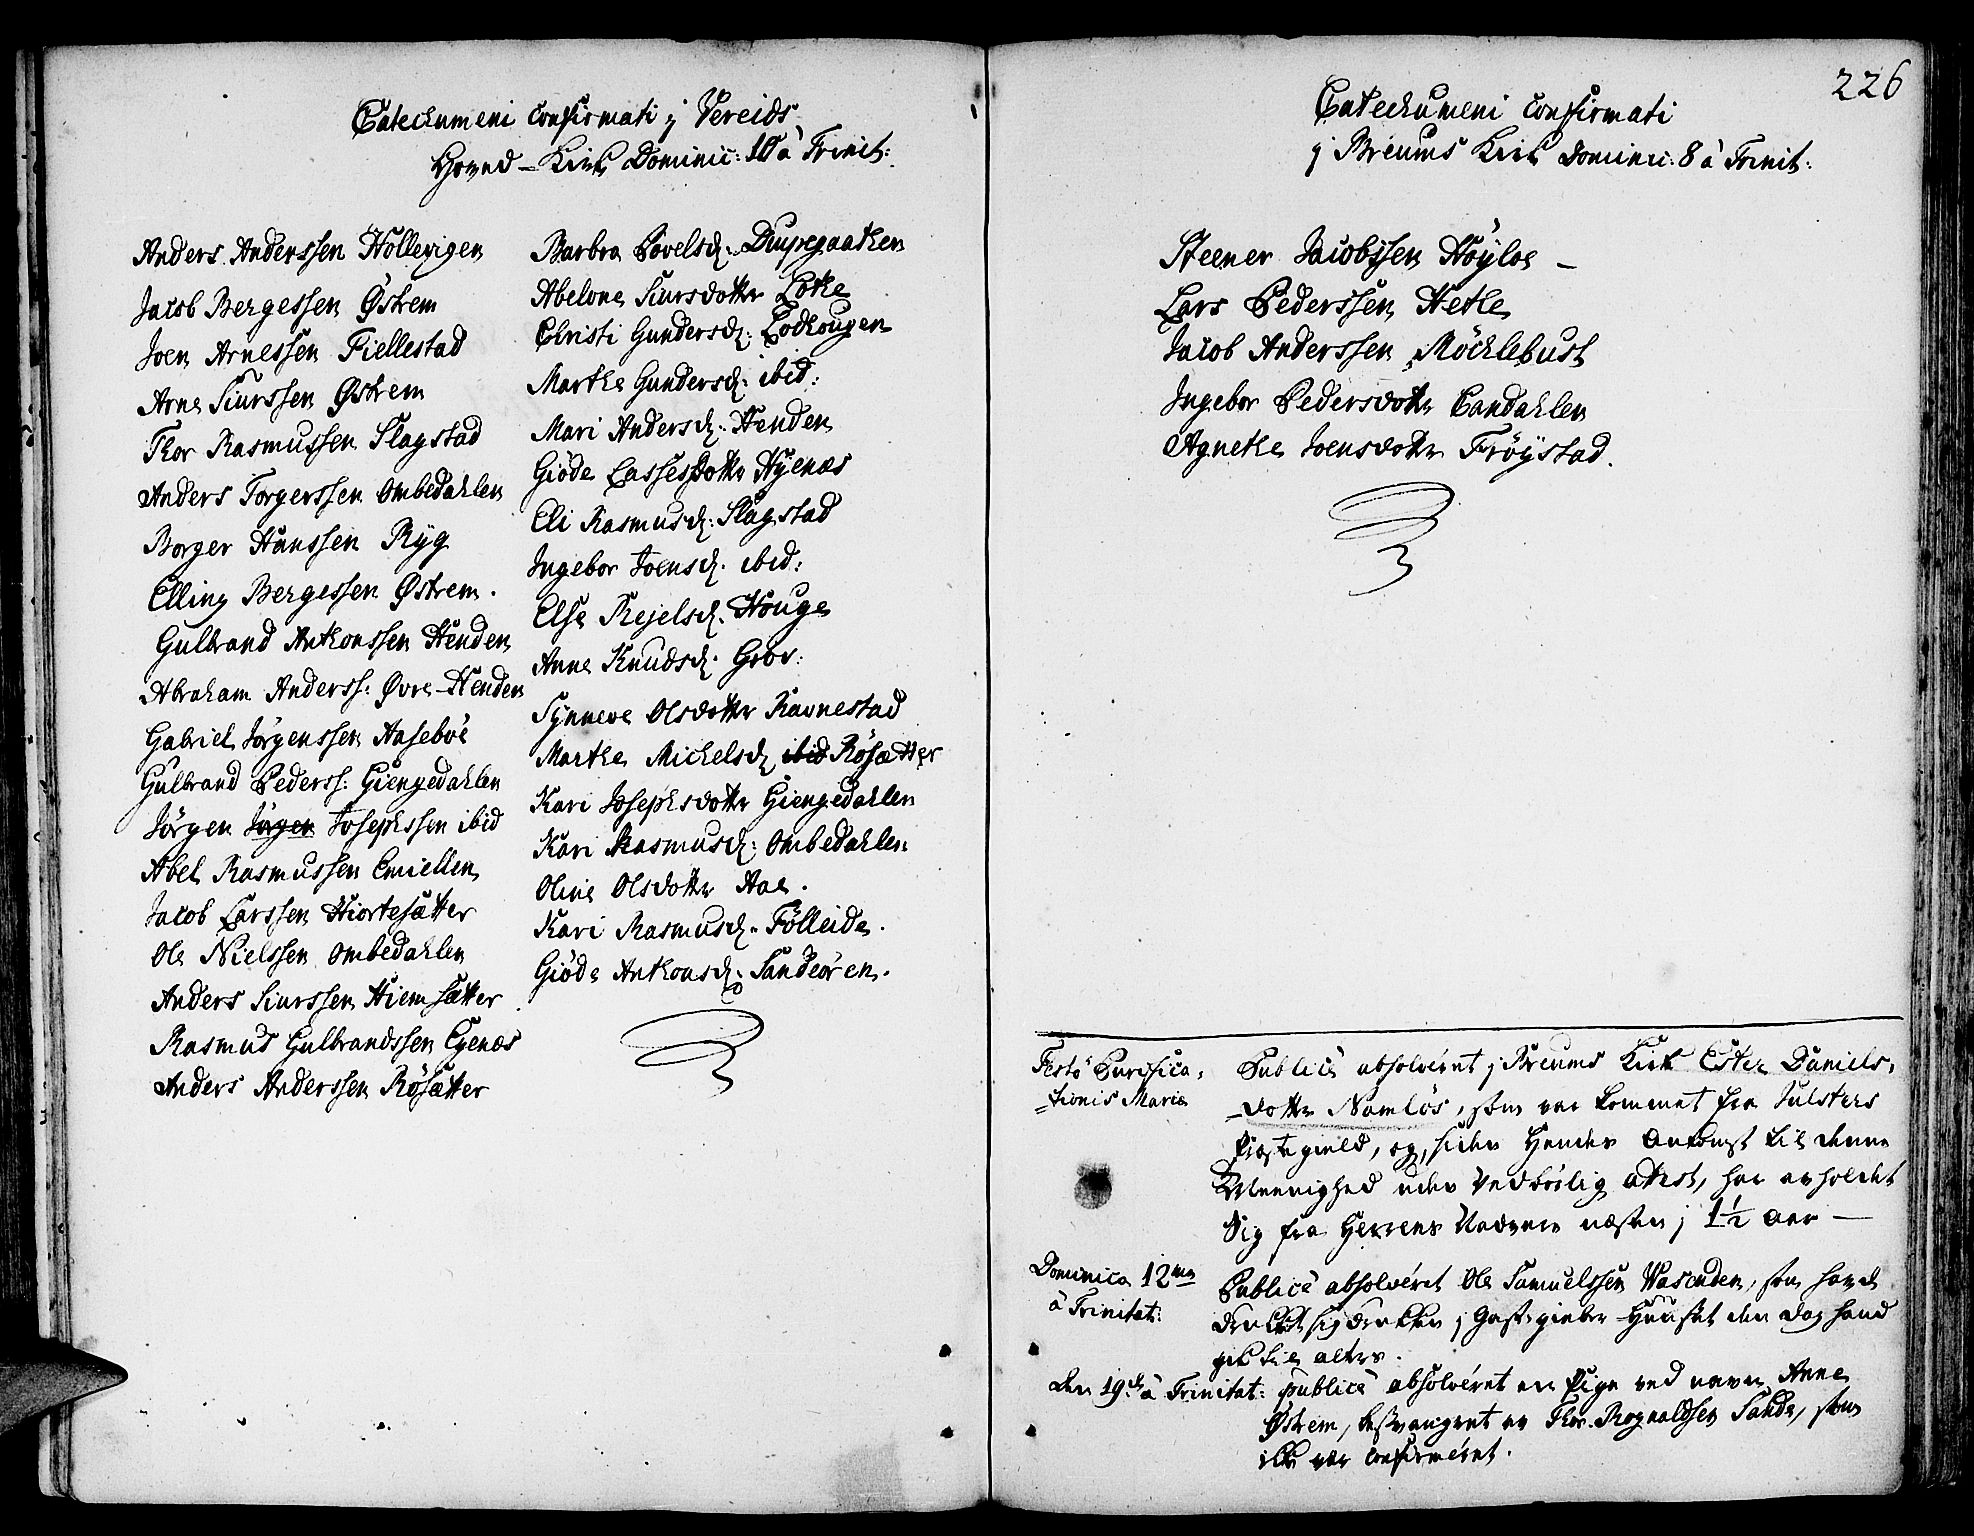 Catechumeni confirmati j Vereids
Hoved-Kirk Dominic: 10 à Trinit:
Anders Anderssen Hollevigen
Jacob Bergessen Østrem
Joen Arnessen Fiellestad
Arne Siurssen Østrem
Thor Rasmussen Slagstad
Anders Torgerssen Ombedahlen
Borger Hanssen Ryg
Elling Bergessen Østrem.
Gulbrand Anthonssen Henden
Abraham Anderss: Øvre-Henden
Gabriel Jørgenssen Aasebøe
Gulbrand Pederss: Giengedahlen
Jörgen Jörgen Josephssen ibid
Abel Rasmussen Emiellen
Jacob Larssen Hiortesætter
Ole Nielssen Ombedahlen
Anders Siurssen Hiemsætter
Rasmus Gulbrandssen Eyenæs
Anders Anderssen Rösætter
Barbra Povelsd. Diupegaathen
Abelone Siursdotter Lothe
Christi Gundersd: Lodhougen
Marthe Gundersd: ibid:
Mari Andersd: Henden
Giöde Lassesdotter Hyenæs
Eli Rasmusd: Slagstad
Ingebor Joensd. ibid:
Else Kejelsd. Houge
Anne Knudsd. Grov:
Synneve Olsdotter Ravnestad
Marthe Michelsd ibid Rösætter
Kari Josephsdotter Giengedahlen
Kari Rasmusd: Ombedahlen
Oline Olsdotter Aae.
Kari Rasmusd. Fölleide.
Giöde Anthonsd: Sandeören.
226
Catechumeni confirmati
j Breums Kirk Dominic: 8 à Trinit:
Steener Jacobssen Höyloe –
Lars Pederssen Hetle
Jacob Anderssen Möchlebust
Ingebor Pedersdotter Candahlen
Agnethe Joensdotter Fröystad.
Festô Purifica-
-tionis Mariæ
Publicè absolvéret j Breums Kirk Ester Daniels-
-dotter Namløs, som var kommet fra Julsters
Præstegield, og, siden Hendes Ankomst til denne
Meenighed uden Vedbörlig attest, har entholdet
Sig fra Herrens Nadvere næsten j 1½ Aar —
Dominica 12ma
à Trinitat:
Publicè absolvéret Ole Samuelssen Wasenden, som havde
drukket sig drukken j Gæstgieber-Huuset den Dag hand
gik til alters.
Den 19de à Trinitat: publicè absolvéret en Pige ved navn Anne
Østrem, besvangret av Thor Rognaldsen Sande, som
ikke var confirméret.